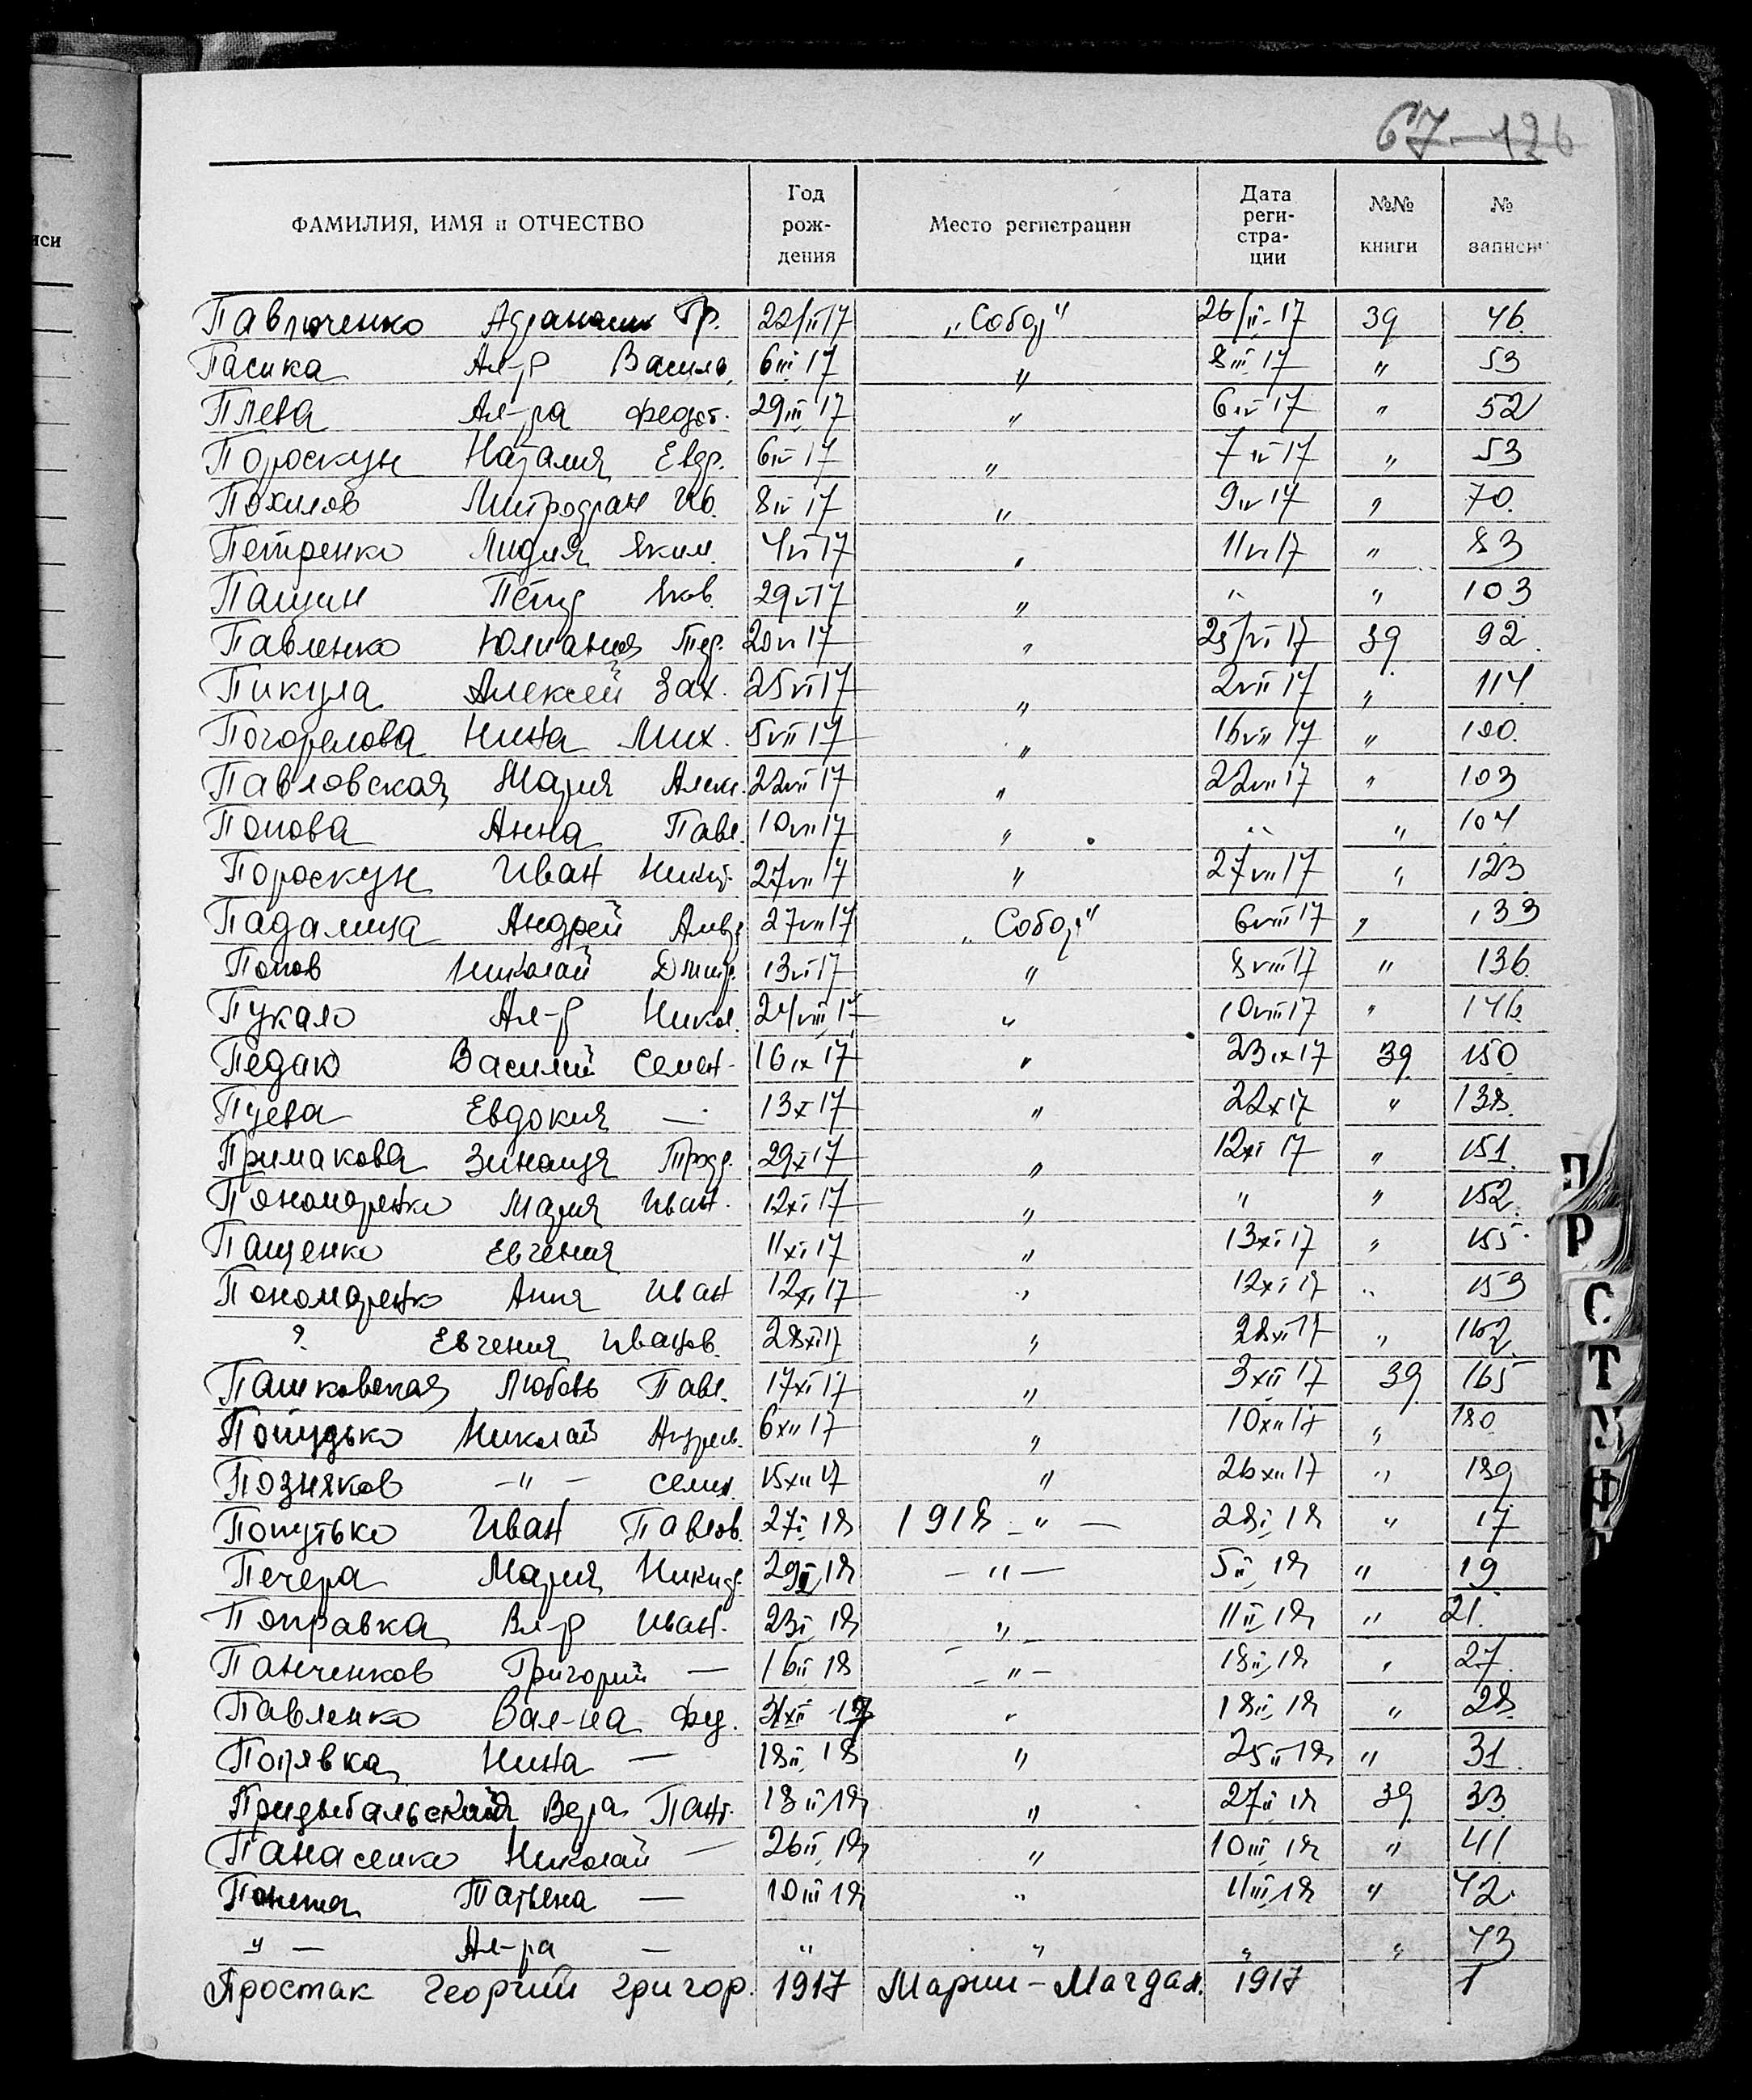 67-126
иси
ФАМИЛИЯ, ИМЯ и ОТЧЕСТВО Год рож- дения Место регистрации Дата реги- стра- ции №№ книги № записи
Павлюченко Гр. 22/II 17 „Собор" 26/II-17 39 46
Пасика Ал-р Василь. 6III 17 " 8III 17 " 53
Плева Ал-ра Федот. 29III 17 " 6IV 17 " 52
Пороскун Наталия Евдр. 6IV 17 " 7IV 17 " 53
Похилов Митрофан Ив. 8IV 17 " 9IV 17 " 70
Петренко Лидия Яким. 4VI 17 " 11VI 17 " 83
Пащин Пётр Яков. 29VI 17 " " " 103
Павленко Юлиания Тер. 20VI 17 " 25/VI 17 39 92
Пикула Алексей Зах. 25VI 17 " 2VII 17 " 114
Погорелова Нина Мих. 5VII 17 " 16VII 17 " 100
Павловская Мария Алек. 22VII 17 " 22VII 17 " 103
Попова Анна Павл. 10VII 17 " " " 104
Пороскун Иван Никит. 27VII 17 " 27VII 17 " 123
Падалица Андрей 27VII 17 „Собор" 6VIII 17 " 133
Попов Николай Дмитр. 13VI 17 " 8VIII 17 " 136
Пукало Ал-р Никол. 24VIII 17 " 10VIII 17 " 146
Педак Василий Семен. 16IX 17 " 23IX 17 39 150
Евдокия — 13X 17 " 22X 17 " 138
Примакова Зинаида Троф. 29X 17 " 12XI 17 " 151
Пономаренко Мария Иван. 12XI 17 " " " 152
Пащенко Евгения 11XI 17 " 13XI 17 " 155
Пономаренко Анна Иван 12XI 17 " 12XI 17 " 153
? Евгения Иванов. 28XI 17 " 28XI 17 " 162
Пашковская Любовь Павл. 17XI 17 " 3XII 17 39 165
Попудько Николай Андреев. 6XII 17 " 10XII 17 " 180
Позняков -"- Семен. 15XII 17 " 26XII 17 " 189
Попутько Иван Павлов. 27I, 18 1918 -"- 28I, 18 " 17
Печера Мария Никиф. 29I, 18 -"- 5II, 18 " 19
Поправка Вл-р Иван. 23I, 18 " 11II, 18 " 21
Панченков Григорий — 16II 18 -"- 18II, 18 " 27
Павленко Вал-на Фед. 31XII -17 " 18II, 18 " 28
Попявка Нина — 18II, 18 " 25II 18 " 31
Придыбальская Вера Пант. 18II, 18 " 27II 18 39 33
Панасенко Николай — 26II, 18 " 10III, 18 " 41
Татьена — 10III 18 " 11III, 18 " 42
" — Ал-ра — " " " " 43
Простак Георгий Григор. 1917 Марии-Магдал. 1917 1
П
Р
С
Т
У
Ф